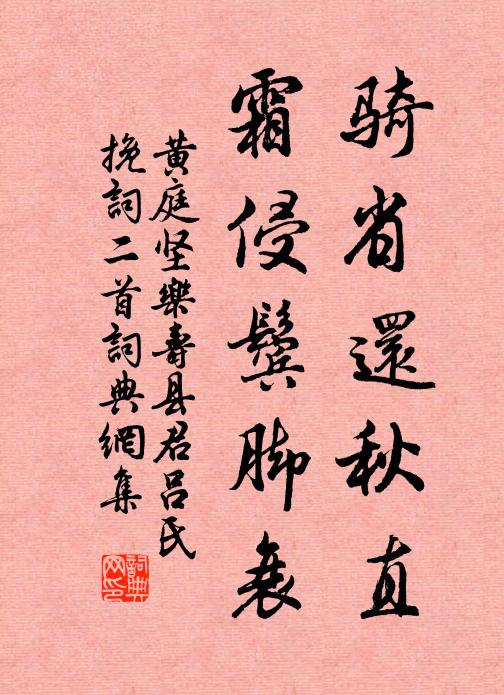 骑省還秋直
霜侵鬓脚衰
黄庭坚樂壽县君呂氏
挽詞二首詞典網集
詞典网印